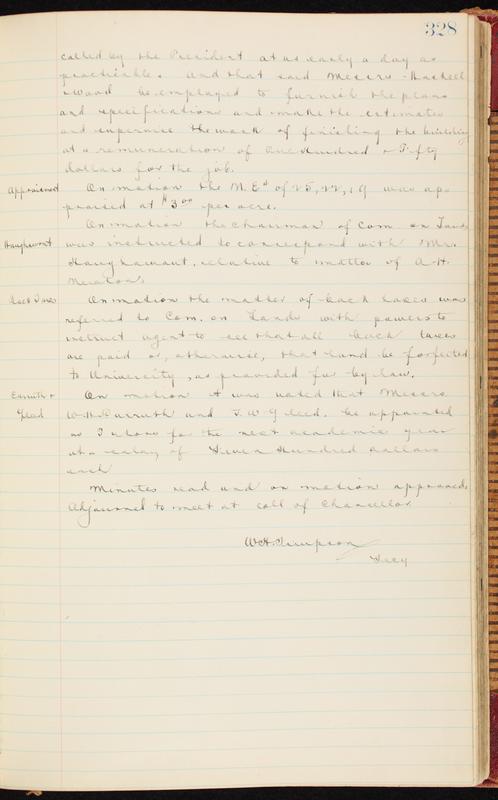 328
called by the President at as early a day as
practicable. and that said Messrs Haskell
& Wood be employed to furnish the plans
and specifications and make the estimates
and supervise the work of finishing the building
at a remuneration of One Hundred & Fifty
dollars for the job.
On motion the N.E¼ of 25, 22, 19 was ap-
praised at $3.00 per acre.
On motion the chairman of Com on Lands
was instructed to correspond with Mr.
relative to matter of A.H.
On motion the matter of back taxes was
referred to Com. on Lands with powers to
instruct agent to see that all back taxes
are paid or, otherwise, that land be forfeited
to University, as provided for by law.
On motion it was voted that Messrs
W.H. Carruth and F.W. Gleed. be appointed
as Tutors for the next academic year
at a salary of Seven Hundred dollars
each
Minutes read and on motion approved,
Adjourned to meet at call of Chancellor.
W.H. Simpson
Secy